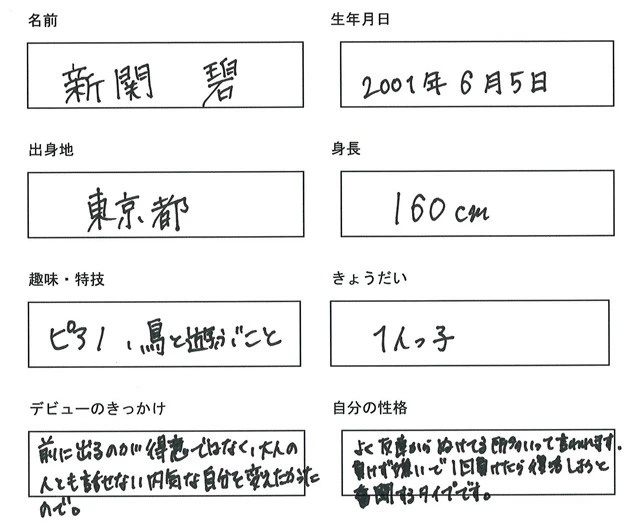 名前
新関 碧
生年月日
2001年6月5日
出身地
東京都
身長
160cm
趣味・特技
ピアノ、鳥と遊ぶこと
きょうだい
1人っ子
デビューのきっかけ
前に出るのが得意ではなく、大人の
人とも話せない内気な自分を変えたかった
ので。
自分の性格
よく友達からぬけてる所多いって言われます。
負けず嫌いで1回負けたら
奮闘するタイプです。